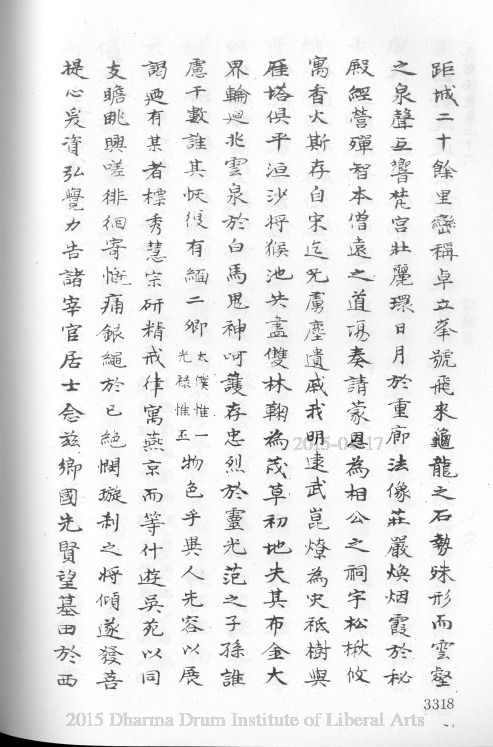 距城二十餘里巒稱卓立峯號飛來龜龍之石勢殊形而雲壑
之泉聲互響梵宮壯麗環日月於重廊法像莊嚴煥烟霞於秘
殿經營殫智本僧遠之道場奏請蒙恩為相公之祠宇松楸攸
寓香火斯存自宋迄元屬塵遺戚我明建武崑燎為灾祗樹與
雁塔俱平洹沙將猴池共盡雙林鞠為茂草初地失其布金大
界輪迴兆雲泉於白馬鬼神呵護存忠烈於靈光范之子孫誰
慮千數誰其恢復有緬二卿太僕惟一光祿惟丕物色乎異人先容以展
謁迺有某者標秀慧宗研精戒律寓燕京而等什遊吳苑以同
支瞻眺興嗟徘徊寄慨痛銀繩於已絕憫璇刹之將傾遂發菩
提心爰資弘覺力告諸宰官居士念茲鄉國先賢望墓田於西
3318
2015-0 17
2015 Dharma Drum Institute of Liberal Arts